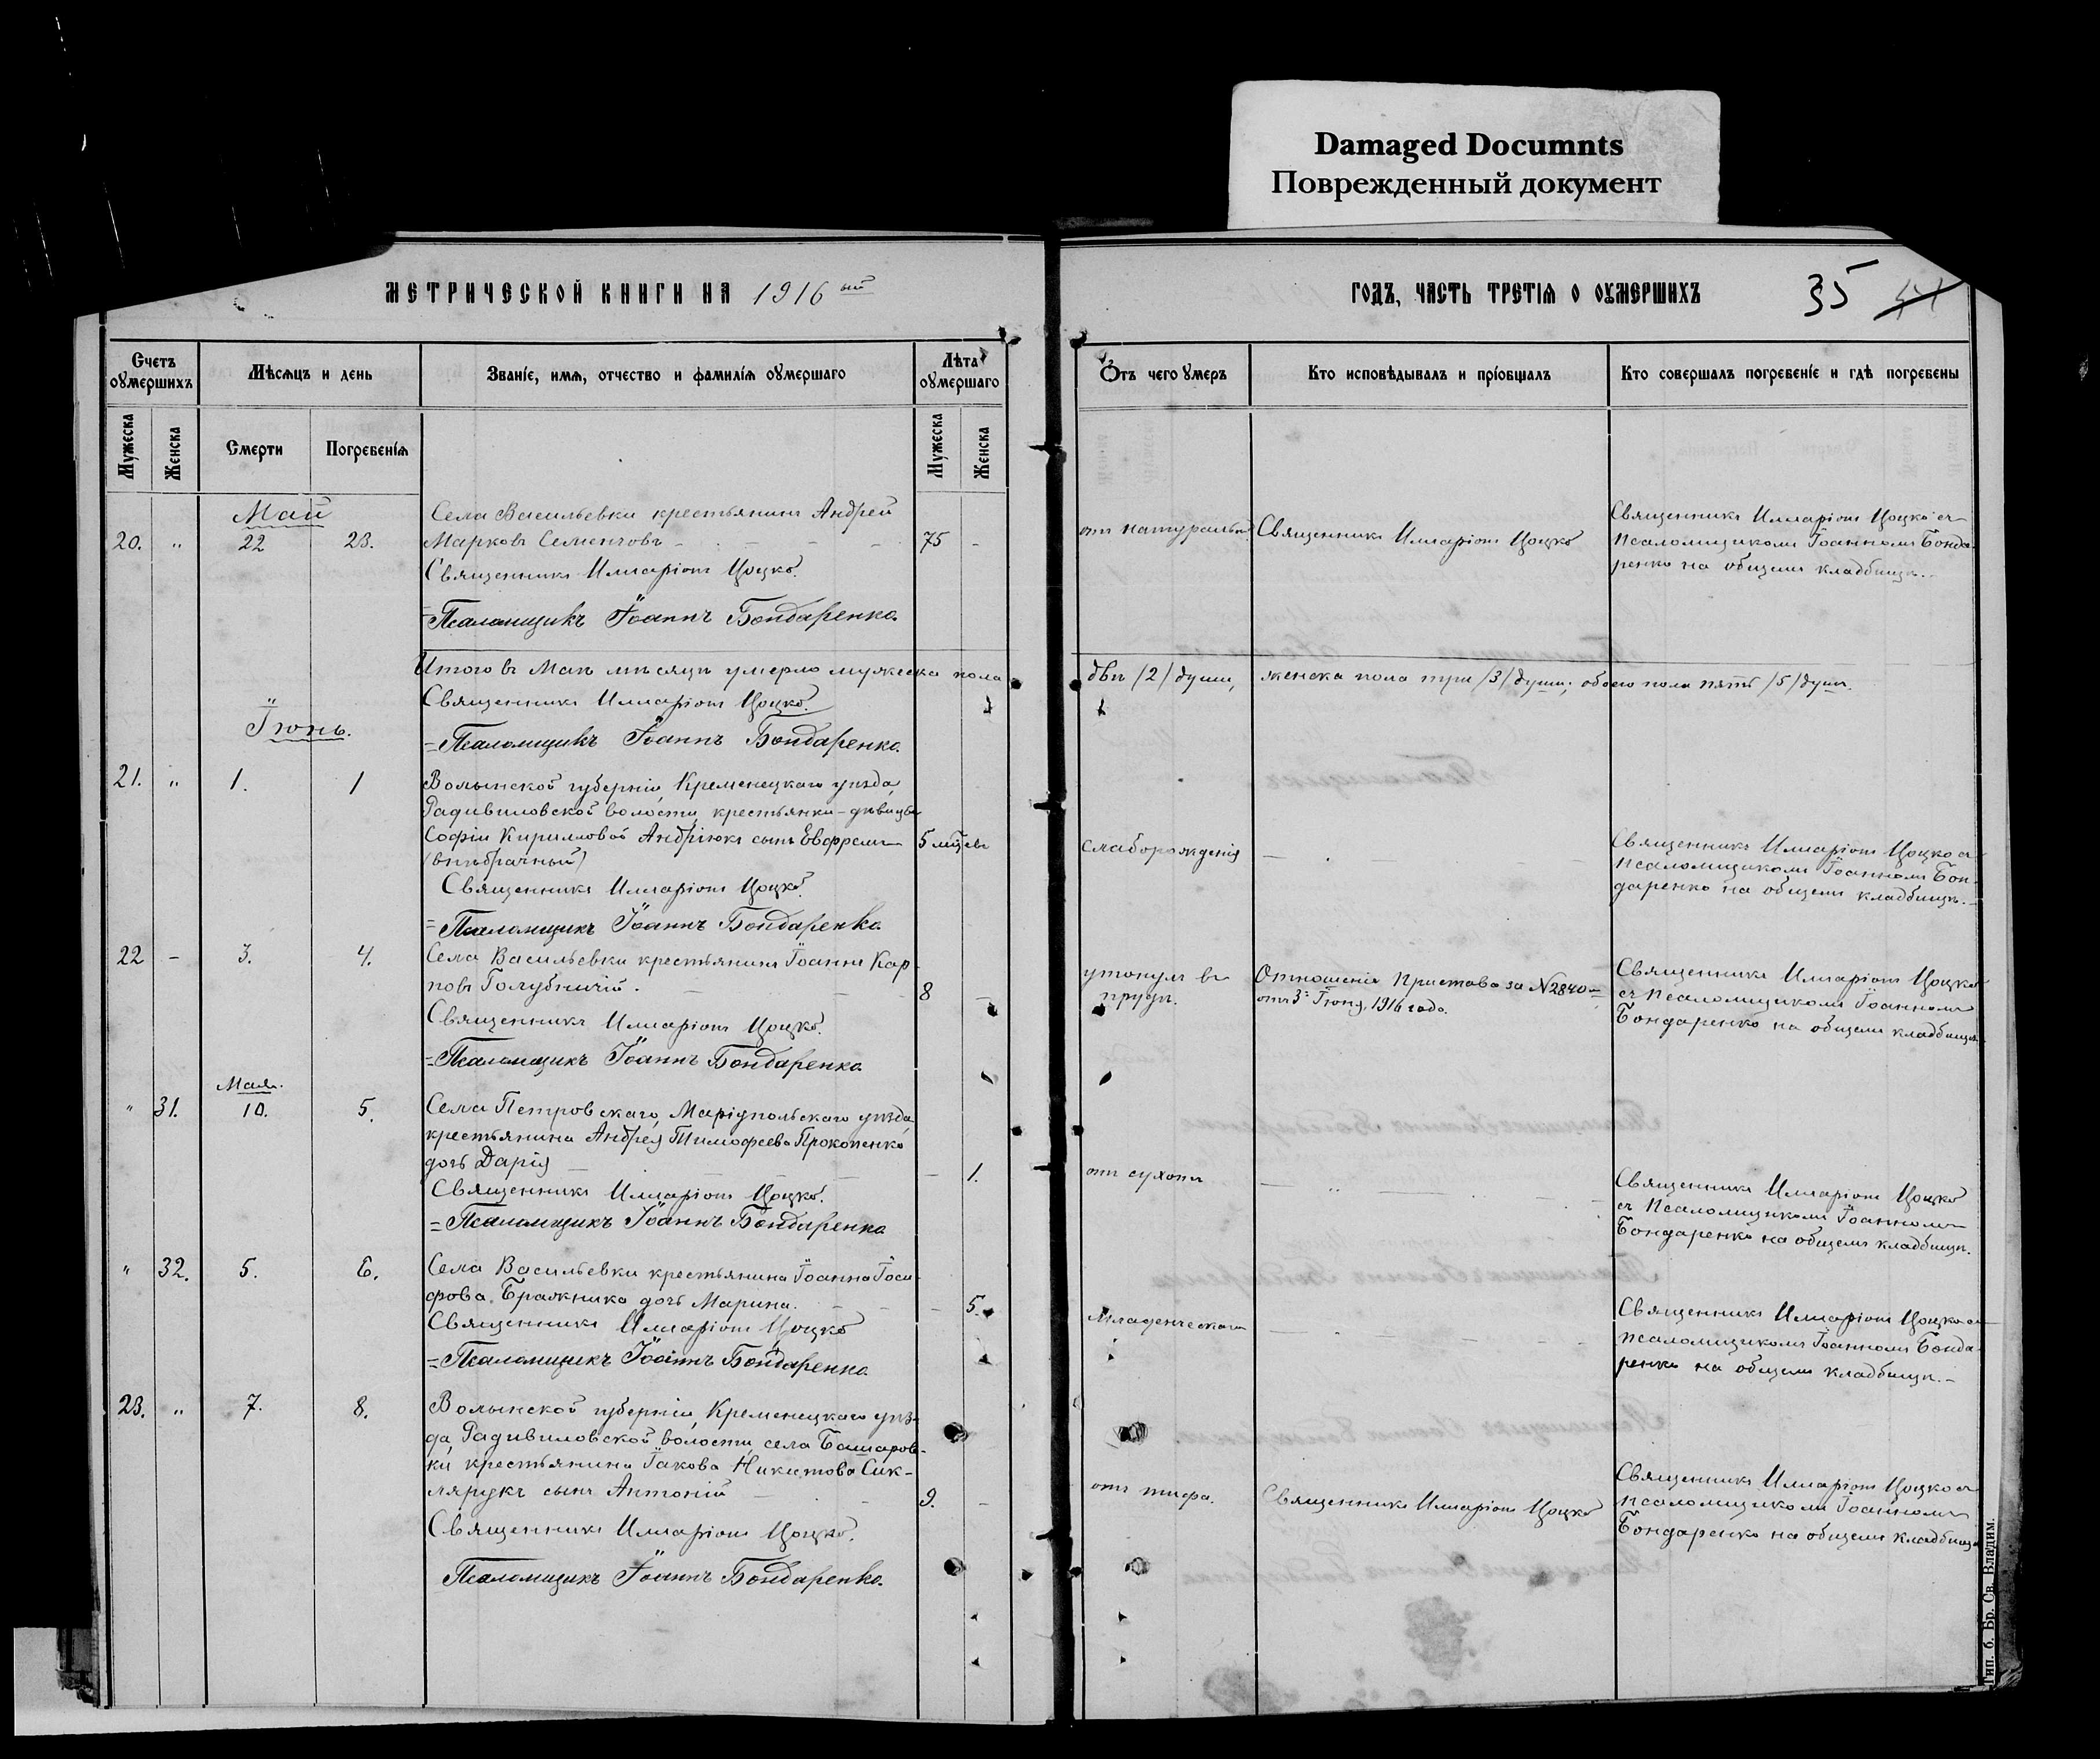 Damaged Documnts
Поврежденный документ
МЕТРИЧЕСКОЙ КНИГИ НА 1916 ый
ГОДЪ, ЧАСТЬ ТРЕТІЯ О ОУМЕРШИХЪ
35
Счетъ оумершихъ
Мѣсяцъ и день
Званіе, имя, отчество и фамилія оумершаго
Лѣта оумершаго
Отъ чего умеръ
Кто исповѣдывалъ и пріобщалъ
Кто совершалъ погребеніе и гдѣ погребены
Мужеска
Женска
Смерти
Погребенія
Мужеска
Женска
Май
20. „ 22 23.
Села Васильевки крестьянинъ Андрей
Марковъ Семенчовъ
75 -
Священникъ Илларіонъ Цоцко.
Псаломщикъ Іоаннъ Бондаренко.
отъ натуральн.
Священникъ Илларіонъ Цоцко
Священникъ Илларіонъ Цоцко съ
псаломщикомъ Іоанномъ Бонда-
ренко на общемъ кладбищѣ.
Итого въ Маѣ мѣсяцѣ умерло мужеска пола
двѣ /2/ души, женска пола три /3/ души; обоего пола пять /5/ душъ.
Священникъ Илларіонъ Цоцко.
=Псаломщикъ Іоаннъ Бондаренко.
Іюнь.
21. „ 1. 1
Волынской губерніи, Кременецкаго уѣзда,
Радивиловской волости, крестьянки-дѣвицы
Софіи Кирилловой Андріюкъ сынъ Евфремъ
(внѣбрачный)
5 мѣсцевъ
Священникъ Илларіонъ Цоцко.
=Псаломщикъ Іоаннъ Бондаренко.
слаборожденія
Священникъ Илларіонъ Цоцко съ
псаломщикомъ Іоанномъ Бон-
даренко на общемъ кладбищѣ.
22 - 3. 4.
Села Васильевки крестьянинъ Іоаннъ Кар-
повъ Голубничій.
8 -
Священникъ Илларіонъ Цоцко.
=Псаломщикъ Іоаннъ Бондаренко
утонулъ въ
прудѣ.
Отношеніе Пристава за №2840
отъ 3 Іюня, 1916 года.
Священникъ Илларіонъ Цоцко
съ псаломщикомъ Іоанномъ
Бондаренко на общемъ кладбищѣ
Мая.
„ 31. 10. 5.
Села Петровскаго, Маріупольскаго уѣзда,
крестьянина Андрея Тимофеева Прокопенко
дочь Дарія
- 1.
Священникъ Илларіонъ Цоцко.
=Псаломщикъ Іоаннъ Бондаренко
отъ сухоты
Священникъ Илларіонъ Цоцко
съ псаломщикомъ Іоанномъ
Бондаренко на общемъ кладбищѣ.
„ 32. 5. 6.
Села Васильевки крестьянина Іоанна Іоси-
фова Бражника дочь Марина.
- 5.
Священникъ Илларіонъ Цоцко
=Псаломщикъ Іоаннъ Бондаренко
Младенческаго
Священникъ Илларіонъ Цоцко съ
псаломщикомъ Іоанномъ Бонда-
ренко на общемъ кладбищѣ.-
23. „ 7. 8.
Волынской губерніи, Кременецкаго уѣз-
да, Радивиловской волости, села Башаров-
ки крестьянина Іакова Никитова Сик-
лярукъ сынъ Антоній
9. -
Священникъ Илларіонъ Цоцко.
Псаломщикъ Іоаннъ Бондаренко.
отъ тифа.
Священникъ Илларіонъ Цоцко
Священникъ Илларіонъ Цоцко съ
псаломщикомъ Іоанномъ
Бондаренко на общемъ кладбищѣ
Тип. б. Бр. Св. Владим.